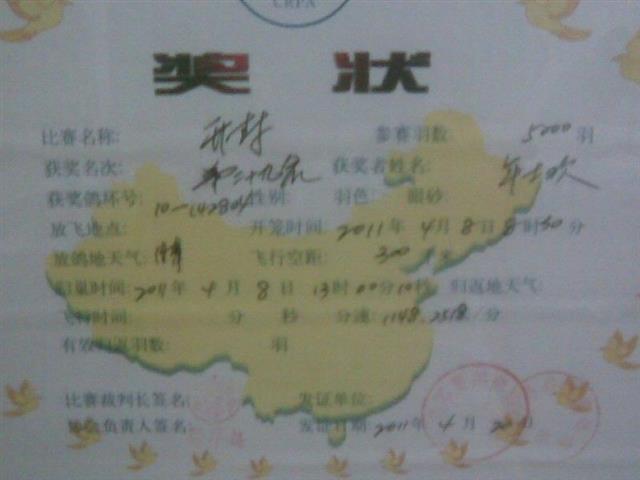 CRPA
奖 状
比赛名称: 开封 参赛羽数: 5000 羽
获奖名次: 第二十九名 获奖者姓名:
获奖鸽环号: 性别: 羽色: 眼砂:
放飞地点: 开笼时间: 2011 年 4 月 8 日 8 时 30 分
放鸽地天气: 晴 飞行空距: 300 千米
归巢时间: 2011 年 4 月 8 日 13 时 00 分 10 秒 归返地天气:
飞行时间: 分 秒 分速: 1148.2518 /分
有效归返羽数: 羽
比赛裁判长签名: 发证单位:
协会负责人签名: 发证日期: 2011 年 4 月